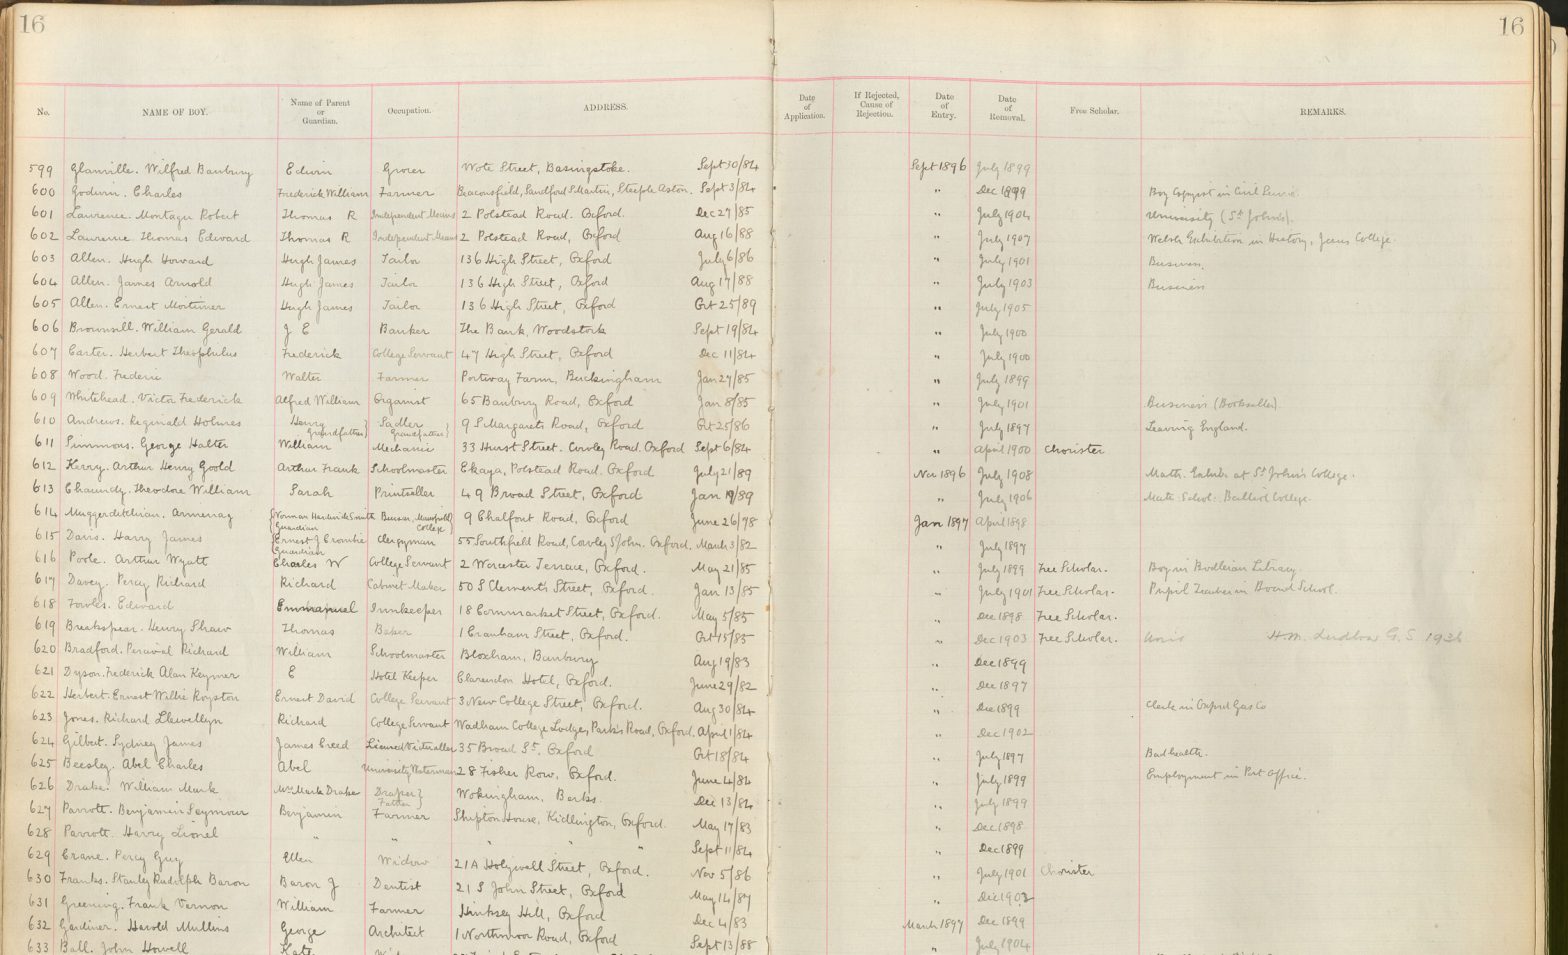 16 16
No. NAME OF BOY. Name of Parent or Guardian. Occupation. ADDRESS. Date of Application. If Rejected, Cause of Rejection. Date of Entry. Date of Removal. Free Scholar. REMARKS.
599 Glanville. Wilfred Banbury Edwin Grocer Wote Street, Basingstoke. Sept 30/84 Sept 1896 July 1899
600 Godwin. Charles Frederick William Farmer Beaconsfield, Sandford S. Martin, Steeple Aston. Sept 3/84 " Dec 1899 Boy Copyist in Civil Service.
601 Laurence. Montagu Robert Thomas R Independent Means 2 Polstead Road. Oxford. Dec 27/85 " July 1904 University (St John's).
602 Laurence Thomas Edward Thomas R Independent Means 2 Polstead Road, Oxford Aug 16/88 " July 1907 Welsh Exhibition in History, Jesus College.
603 Allen. Hugh Howard Hugh James Tailor 136 High Street, Oxford July 6/86 " July 1901 Business.
604 Allen. James Arnold Hugh James Tailor 136 High Street, Oxford Aug 17/88 " July 1903 Business
605 Allen. Ernest Mortimer Hugh James Tailor 136 High Street, Oxford Oct 25/89 " July 1905
606 Brownsill. William Gerald J E Banker The Bank, Woodstock Sept 19/84 " July 1900
607 Carter. Herbert Theophilus Frederick College Servant 47 High Street, Oxford Dec 11/84 " July 1900
608 Wood. Frederic Walter Farmer Portway Farm, Buckingham Jan 27/85 " July 1899
609 Whitehead. Victor Frederick Alfred William Organist 65 Banbury Road, Oxford Jan 8/85 " July 1901 Business (Bookseller).
610 Andrews. Reginald Holmes Henry Grandfather} Sadler Grandfather} 9 S. Margarets Road, Oxford Oct 25/86 " July 1897 Leaving England.
611 Simmons. George Halter William Mechanic 33 Hurst Street. Cowley Road. Oxford Sept 6/84 " April 1900 Chorister
612 Kerry. Arthur Henry Goold Arthur Frank Schoolmaster Ekaya, Polstead Road. Oxford July 21/89 Nov 1896 July 1908 Math. Exhib. at St John's College.
613 Chaundy. Theodore William Sarah Printseller 49 Broad Street, Oxford Jan 19/89 " July 1906 Math. Schol: Balliol College.
614 Muggerditchian. Armenag {Norman Hardwick Smith Guardian Bursar, Mansfield College} 9 Chalfont Road, Oxford June 26/78 Jan 1897 April 1898
615 Davis. Harry James {Ernest J Crombie Guardian Clergyman 55 Southfield Road, Cowley S. John. Oxford. March 3/82 " July 1897
616 Poole. Arthur Wyatt Charles W College Servant 2 Worcester Terrace, Oxford. May 21/85 " July 1899 Free Scholar. Boy in Bodleian Library.
617 Davey. Percy Richard Richard Cabinet Maker 50 S Clement's Street, Oxford. Jan 13/85 " July 1901 Free Scholar. Pupil Teacher in Board School.
618 Fowles. Edward Emmanuel Innkeeper 18 Cornmarket Street, Oxford. May 5/85 " Dec 1898 Free Scholar.
619 Breakspear. Henry Shaw Thomas Baker 1 Cranham Street, Oxford. Oct 15/85 " Dec 1903 Free Scholar. H.M. Ludlow G.S 1936
620 Bradford. Percival Richard William Schoolmaster Bloxham, Banbury Aug 19/83 " Dec 1899
621 Dyson. Frederick Alan Keymer E Hotel Keeper Clarendon Hotel, Oxford. June 29/82 " Dec 1897
622 Herbert. Ernest Willie Royston Ernest David College Servant 3 New College Street, Oxford. Aug 30/84 " Dec 1899 Clerk in Oxford Gas Co
623 Jones. Richard Llewellyn Richard College Servant Wadham College Lodge, Parks Road, Oxford. April 1/84 " Dec 1902
624 Gilbert. Sydney James James Creed Licensed Victualler 35 Broad St, Oxford Oct 18/84 " July 1897 Bad health.
625 Beesley. Abel Charles Abel University Waterman 28 Fisher Row, Oxford. June 4/84 " July 1899 Employment in Post Office.
626 Drake. William Mark Mrs Mark Drake Draper} Father} Wokingham, Berks. Dec 13/84 " July 1899
627 Parrott. Benjamin Seymour Benjamin Farmer Shipton House, Kidlington, Oxford. May 17/83 " Dec 1898
628 Parrott. Harry Lionel " " " " " Sept 11/84 " Dec 1899
629 Crane. Percy Guy Ellen Widow 21A Holywell Street, Oxford. Nov 5/86 " July 1901 Chorister
630 Franks. Stanley Rudolph Baron Baron J Dentist 21 S John Street, Oxford May 14/87 " Dec 1902
631 Greening. Frank Vernon William Farmer Hinksey Hill, Oxford Dec 4/83 March 1897 Dec 1899
632 Gardiner. Harold Mullins George Architect 1 Northmoor Road, Oxford Sept 13/88 " July 1904
633 Ball. John Howell Kate